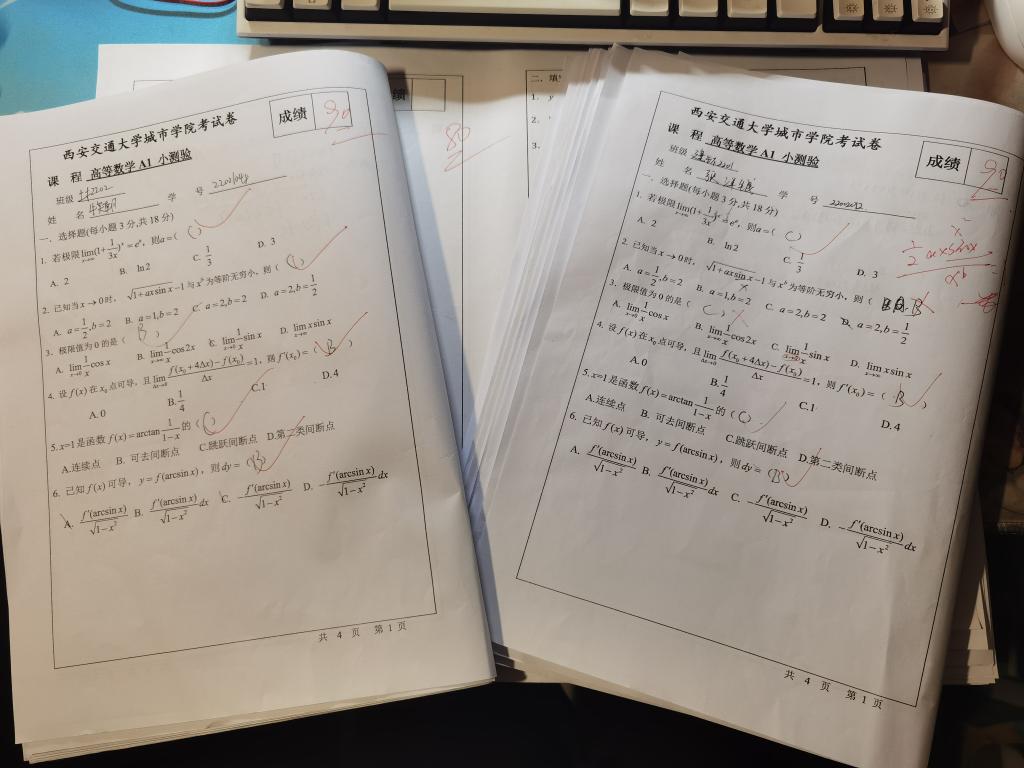 西安交通大学城市学院考试卷
成绩 90
课 程 高等数学 A1 小测验
班级 土木2202
姓 名 学 号
一、选择题(每小题 3 分,共 18 分)
1. 若极限 lim(x→∞)(1+1/3x)^x = e^a, 则a=( C )
A. 2 B. ln2 C. 1/3 D. 3
2. 已知当 x→0时, √(1+ax sin x) −1 与 x^b 为等阶无穷小, 则 ( C )
A. a=1/2,b=2 B. a=1,b=2 C. a=2,b=2 D. a=2,b=1/2
3. 极限值为 0 的是 ( B )
A. lim(x→0) 1/x cos x B. lim(x→∞) 1/x cos2x C. lim(x→0) 1/x sin x D. lim(x→∞) x sin x
4. 设 f(x) 在 x₀ 点可导, 且 lim(Δx→0) (f(x₀+4Δx)−f(x₀))/Δx =1, 则 f'(x₀)= ( B )
A.0 B.1/4 C.1 D.4
5. x=1是函数 f(x)=arctan 1/(1−x) 的 ( C )
A.连续点 B. 可去间断点 C.跳跃间断点 D.第二类间断点
6. 已知 f(x) 可导, y=f(arcsin x), 则 dy= ( B )
A. f'(arcsin x)/√(1−x²) B. f'(arcsin x)/√(1−x²) dx C. −f'(arcsin x)/√(1−x²) D. −f'(arcsin x)/√(1−x²) dx
共 4 页 第 1 页
绩
80
二、填
1. y
2.
3.
西安交通大学城市学院考试卷
成绩 90
课 程 高等数学 A1 小测验
班级
姓 名 学 号
一、选择题(每小题 3 分,共 18 分)
1. 若极限 lim(x→∞)(1+1/3x)^x = e^a, 则a=( C )
A. 2 B. ln2 C. 1/3 D. 3
2. 已知当 x→0时, √(1+ax sin x) −1 与 x^b 为等阶无穷小, 则 ( B
A. a=1/2,b=2 B. a=1,b=2 C. a=2,b=2 D. a=2,b=1/2
3. 极限值为 0 的是 ( C )
A. lim(x→0) 1/x cos x B. lim(x→∞) 1/x cos2x C. lim(x→0) 1/x sin x D. lim(x→∞) x sin x
4. 设 f(x) 在 x₀ 点可导, 且 lim(Δx→0) (f(x₀+4Δx)−f(x₀))/Δx =1, 则 f'(x₀)= ( B )
A.0 B.1/4 C.1 D.4
5. x=1是函数 f(x)=arctan 1/(1−x) 的 ( C )
A.连续点 B. 可去间断点 C.跳跃间断点 D.第二类间断点
6. 已知 f(x) 可导, y=f(arcsin x), 则 dy= ( B )
A. f'(arcsin x)/√(1−x²) B. f'(arcsin x)/√(1−x²) dx C. −f'(arcsin x)/√(1−x²) D. −f'(arcsin x)/√(1−x²) dx
共 4 页 第 1 页